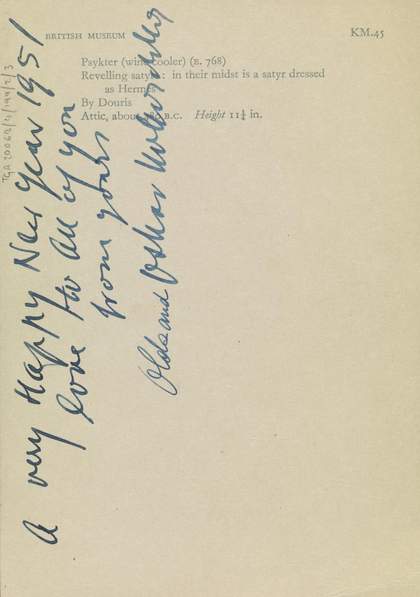 BRITISH MUSEUM
KM.45
Psykter (wine cooler) (E. 768)
Revelling satyrs: in their midst is a satyr dressed
as Hermes
By Douris
Attic, about 480 B.C. Height 11¼ in.
A very Happy New Year 1951
love to all of you
from yours
Olda and Oskar Kokoschka